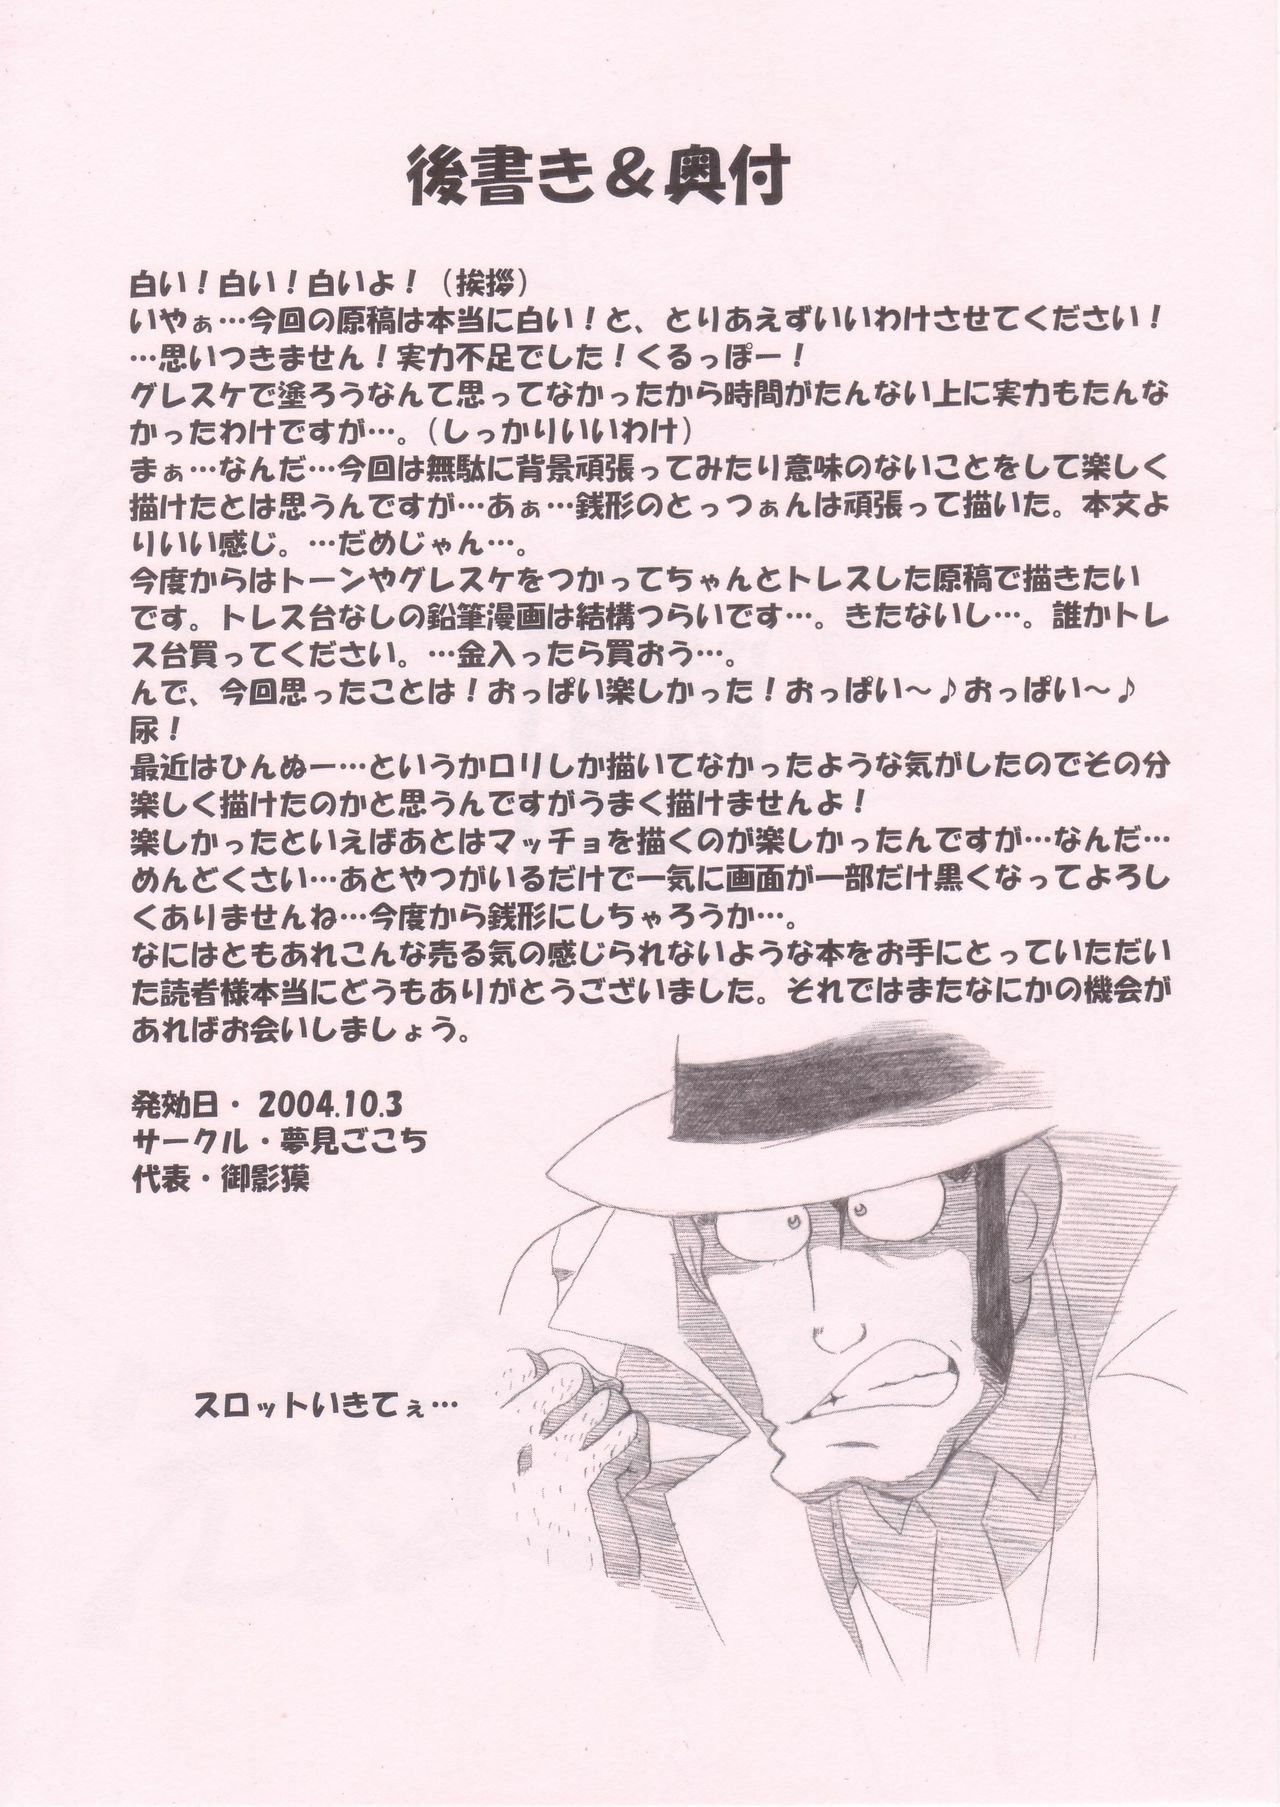 後書き＆奥付
白い！白い！白いよ！（挨拶）
いやぁ…今回の原稿は本当に白い！と、とりあえずいいわけさせてください！
…思いつきません！実力不足でした！くるっぽー！
グレスケで塗ろうなんて思ってなかったから時間がたんない上に実力もたんな
かったわけですが…。（しっかりいいわけ）
まぁ…なんだ…今回は無駄に背景頑張ってみたり意味のないことをして楽しく
描けたとは思うんですが…あぁ…銭形のとっつぁんは頑張って描いた。本文よ
りいい感じ。…だめじゃん…。
今度からはトーンやグレスケをつかってちゃんとトレスした原稿で描きたい
です。トレス台なしの鉛筆漫画は結構つらいです…。きたないし…。誰かトレ
ス台買ってください。…金入ったら買おう…。
んで、今回思ったことは！おっぱい楽しかった！おっぱい～♪おっぱい～♪
尿！
最近はひんぬー…というかロリしか描いてなかったような気がしたのでその分
楽しく描けたのかと思うんですがうまく描けませんよ！
楽しかったといえばあとはマッチョを描くのが楽しかったんですが…なんだ…
めんどくさい…あとやつがいるだけで一気に画面が一部だけ黒くなってよろし
くありませんね…今度から銭形にしちゃろうか…。
なにはともあれこんな売る気の感じられないような本をお手にとっていただい
た読者様本当にどうもありがとうございました。それではまたなにかの機会が
あればお会いしましょう。
発効日・ 2004.10.3
サークル・夢見ごこち
代表・御影獏
スロットいきてぇ…